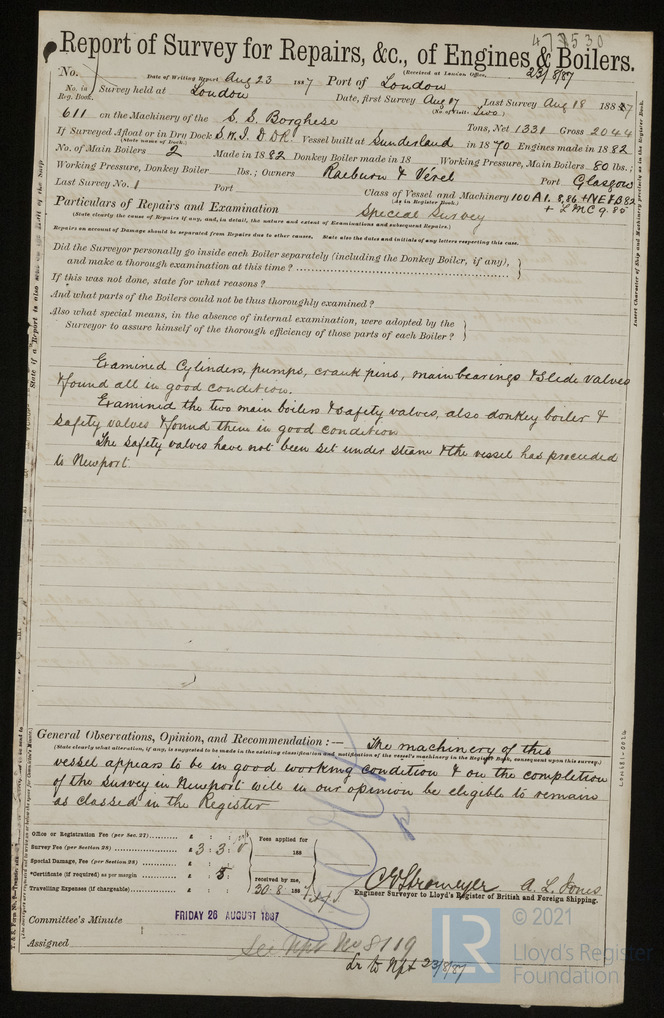 478530
Report of Survey for Repairs, &c., of Engines & Boilers.
(Received at London Office, 23/8/87
No. Date of Writing Report Aug 23 1887 Port of London
No. in Reg. Book. Survey held at London Date, first Survey Aug 17 Last Survey Aug 18 1887
(No. of Visits Two)
611 on the Machinery of the S. S. Borghese Tons, Net 1331 Gross 2044
If Surveyed Afloat or in Dry Dock S.W.I. D DK. Vessel built at Sunderland in 1870 Engines made in 1882
(State name of Dock.)
No. of Main Boilers 2 Made in 1882 Donkey Boiler made in 18 Working Pressure, Main Boilers 80 lbs.;
Working Pressure, Donkey Boiler lbs.; Owners Raeburn & Vérel Port Glasgow
Last Survey No. 1 Port Class of Vessel and Machinery 100 A1. 8,86 + NE & B 82
(As in Register Book.) + LMC 9.85
Particulars of Repairs and Examination Special Survey
(State clearly the cause of Repairs if any, and, in detail, the nature and extent of Examinations and subsequent Repairs.)
Repairs on account of Damage should be separated from Repairs due to other causes. State also the dates and initials of any letters respecting this case.
Did the Surveyor personally go inside each Boiler separately (including the Donkey Boiler, if any),
and make a thorough examination at this time?
If this was not done, state for what reasons?
And what parts of the Boilers could not be thus thoroughly examined?
Also what special means, in the absence of internal examination, were adopted by the
Surveyor to assure himself of the thorough efficiency of those parts of each Boiler?
Examined Cylinders, pumps, crank pins, main bearings & Slide valves
& found all in good condition.
Examined the two main boilers & safety valves, also donkey boiler &
safety valves & found them in good condition
The safety valves have not been set under steam & the vessel has proceeded
to Newport.
General Observations, Opinion, and Recommendation :— The machinery of this
(State clearly what alteration, if any, is suggested to be made in the existing classification and notification of the vessel's machinery in the Register Book, consequent upon this survey.)
vessel appears to be in good working condition & on the completion
of the survey in Newport will in our opinion be eligible to remain
as classed in the Register
Office or Registration Fee (per Sec. 27)
Survey Fee (per Section 28) £ 3 : 3 : 0
Special Damage Fee (per Section 28)
*Certificate (if required) as per margin : 5 :
Travelling Expenses (if chargeable)
Fees applied for
188
received by me,
30.8.1887
C E Stromeyer A. L. Jones
Engineer Surveyor to Lloyd's Register of British and Foreign Shipping.
Committee's Minute FRIDAY 26 AUGUST 1887
Assigned See Npt No 8119
Lr to Npt 23/8/87
Insert Character of Ship and Machinery precisely as in the Register Book.
LON181-0026
© 2021
LR
Lloyd's Register
Foundation